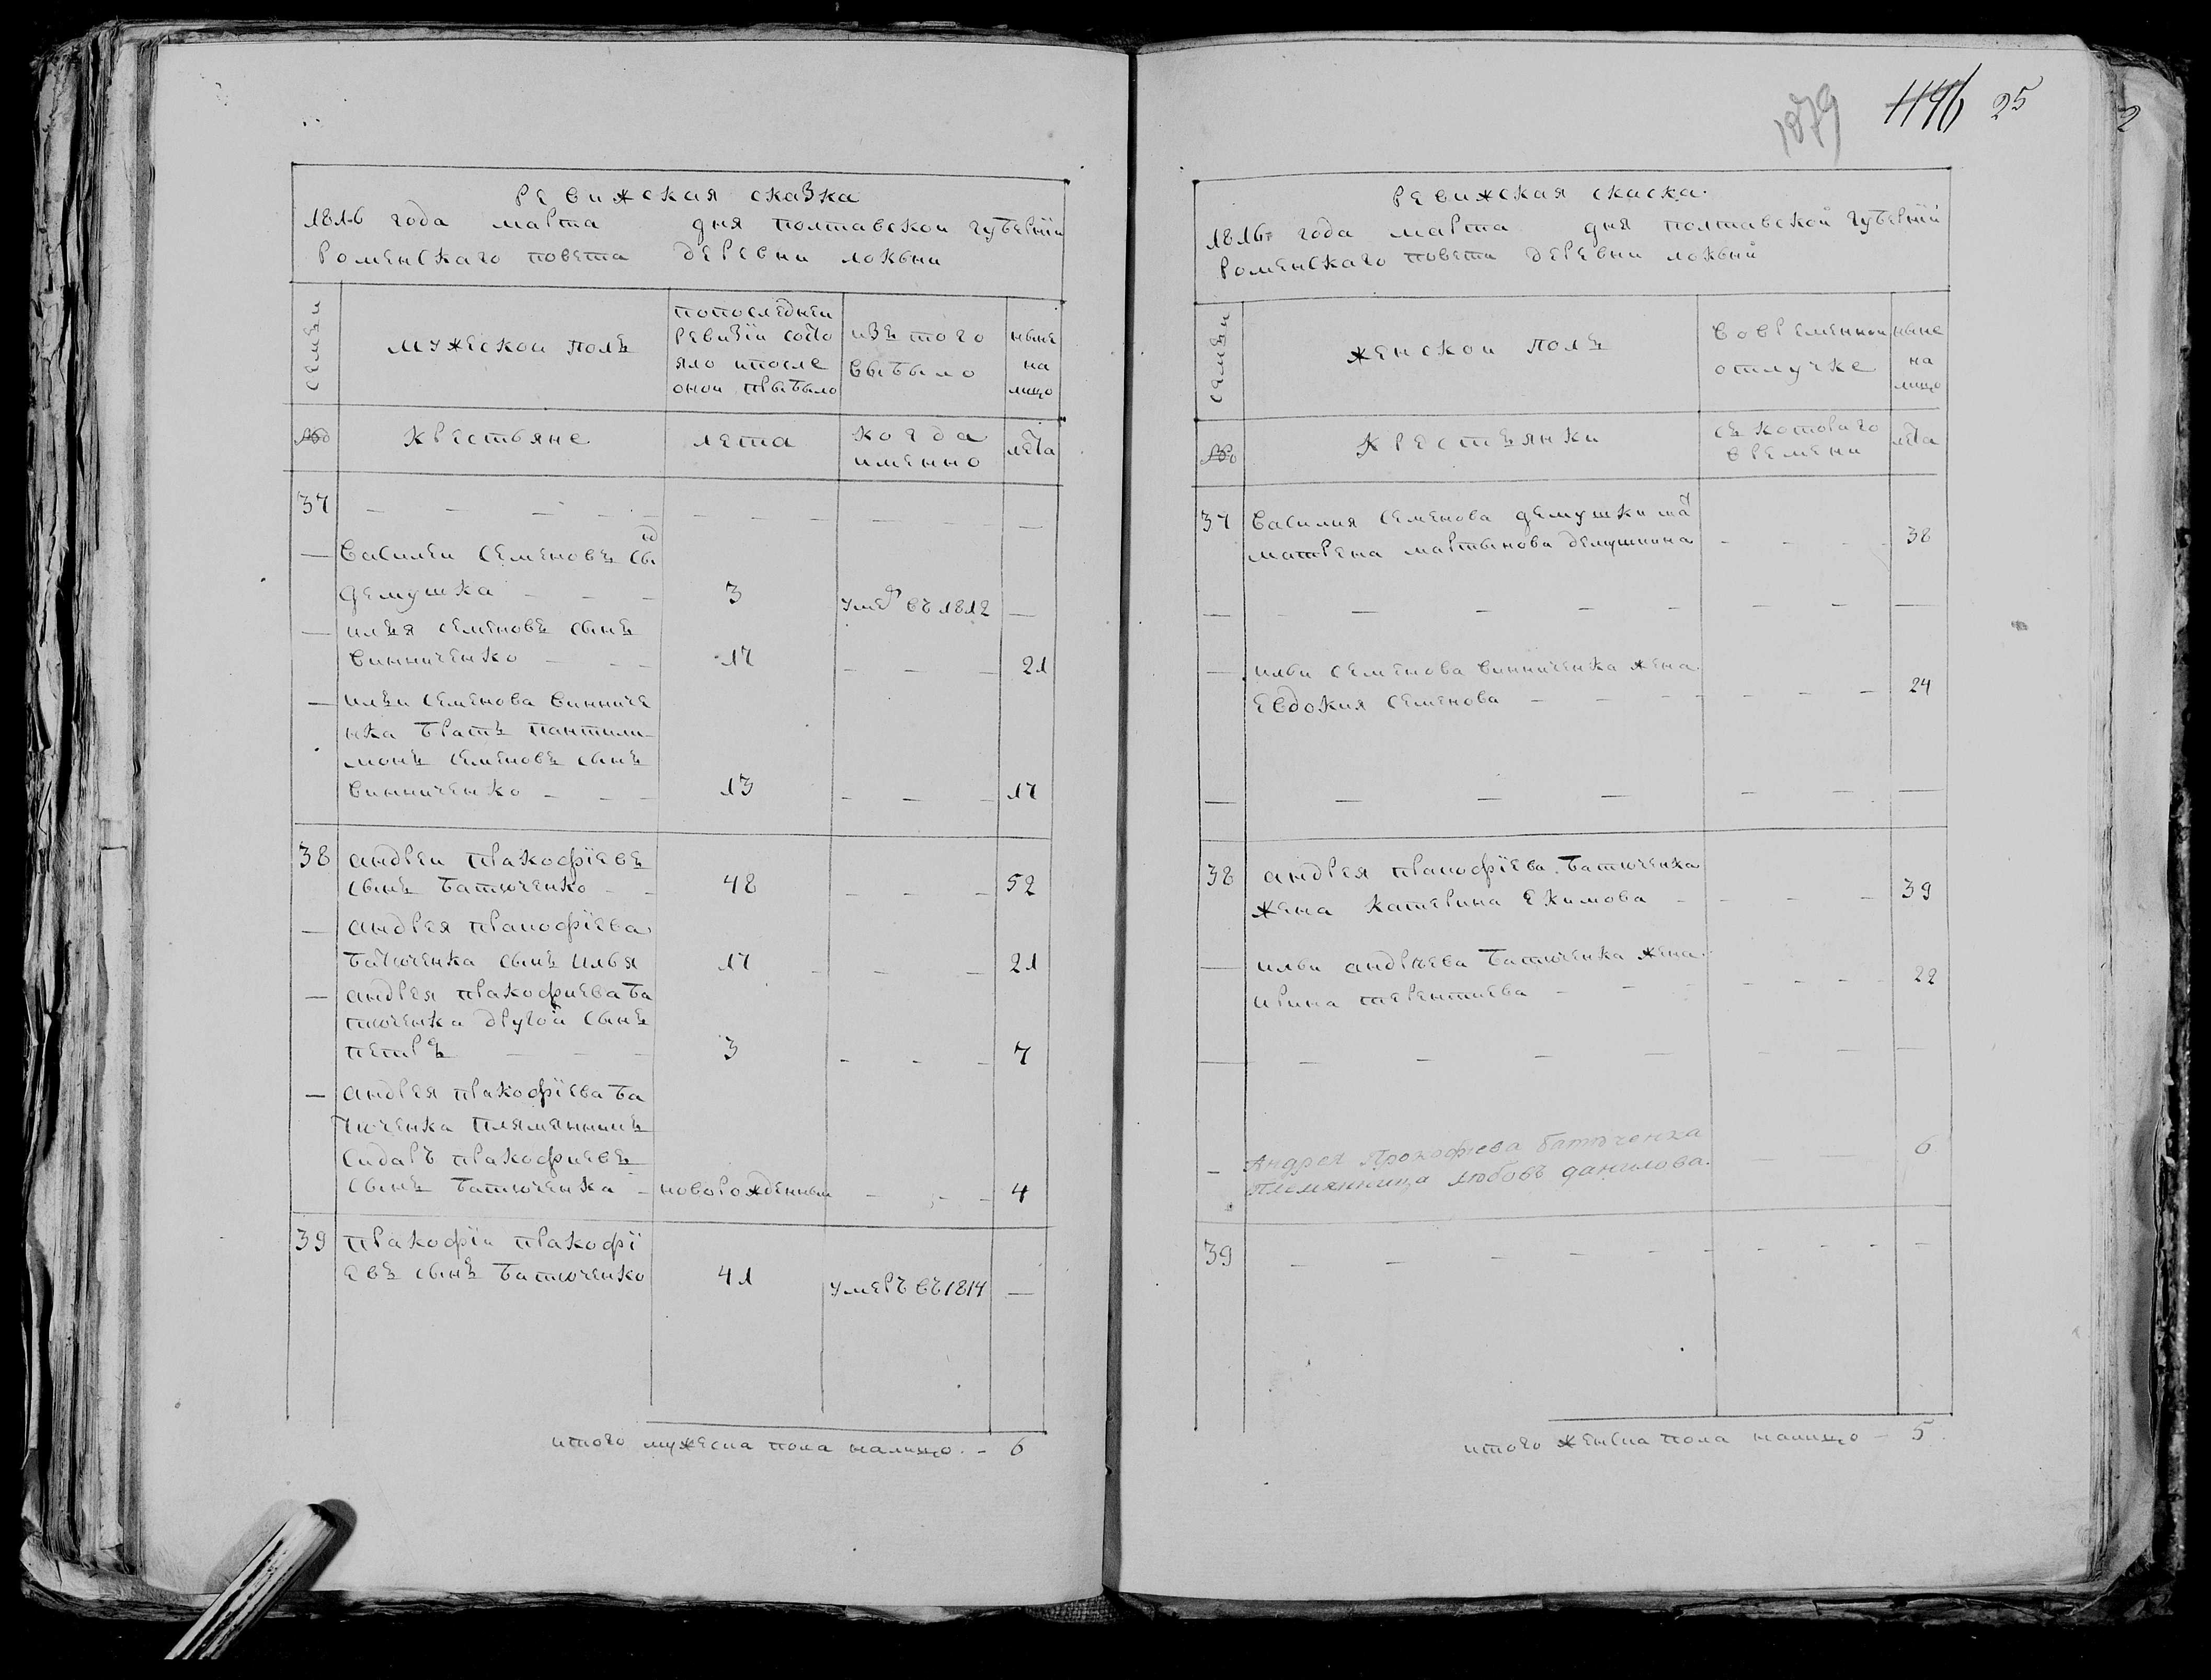 ревижская сказка
1816 года марта дня полтавской губернїи
роменскаго повета деревни локни
семьи
мужеской полъ
попоследней
ревизїи состо
яло ипосле
оной прыбыло
изъ того
выбыло
ныне
на
лицо
№
крестьяне
лета
когда
именно
лета
37 — — — — — — — — — —
— василеи семеновъ сы
демушка — — — 3 умер въ 1812 —
— илья семеновъ сынъ
винниченко — — — 17 — — — 21
— ильи семенова винниче
нка братъ пантили
монъ семеновъ сынъ
винниченко — — — 13 — — — 17
38 андреи пракофїевъ
сынъ батюченко — — 48 — — — 52
— андрея прапофїева
батюченка сынъ илья 17 — — — 21
— андрея пракофиева ба
тюченка другой сынъ
петръ — — — 3 — — — 7
— андрея пракофїева ба
тюченка плямянникъ
сидаръ пракофиевъ
сынъ батюченка — новорожденныи — — — 4
39 пракофїи пракофї
евъ сынъ батюченко 41 умеръ въ 1814 —
итого мужеска пола налицо — 6
1879 1196 25
2
ревижская скаска.
1816 года марта дня полтавской губернїи
роменскаго повета деревни локни
семьи
женской полъ
вовременной
отлучке
ныне
на
лицо
№
крестьянки
съ котораго
времени
лета
37 василия семенова демушки мат
матрена мартынова демушкина — — — — 38
— — — — — — — —
— ильи семенова винниченка жена
евдокия семенова — — — — — — — 24
— — — — — — —
38 андрея прапофїева батюченка
жена катерина екимова — — — — 39
— ильи андреева батюченка жена
ирина терентиева — — — — — — — 22
— — — — — — — —
— Андрея Прокофьева батюченка
племянница любовь данилова. — — 6
39 — — — — — — — — — —
итого женска пола налицо — 5